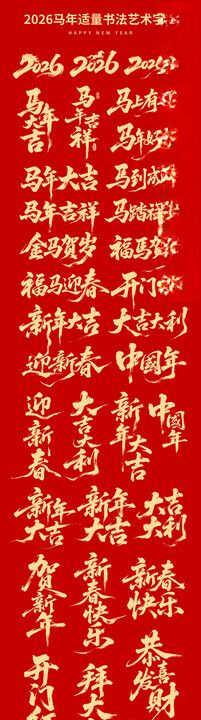 2026马年适量书法艺术字
HAPPY NEW YEAR
2026 2026 2026
马年大吉 马年吉祥 马上有
马年好
马年大吉 马到成
马年吉祥 马踏祥
金马贺岁 福马贺
福马迎春 开门
新年大吉 大吉大利
迎新春 中國年
迎新春 大吉大利 新年大吉 中國年
新年大吉 新年大吉 大吉大利
贺新年 新春快乐 新春快乐
恭喜发财
开门 拜大